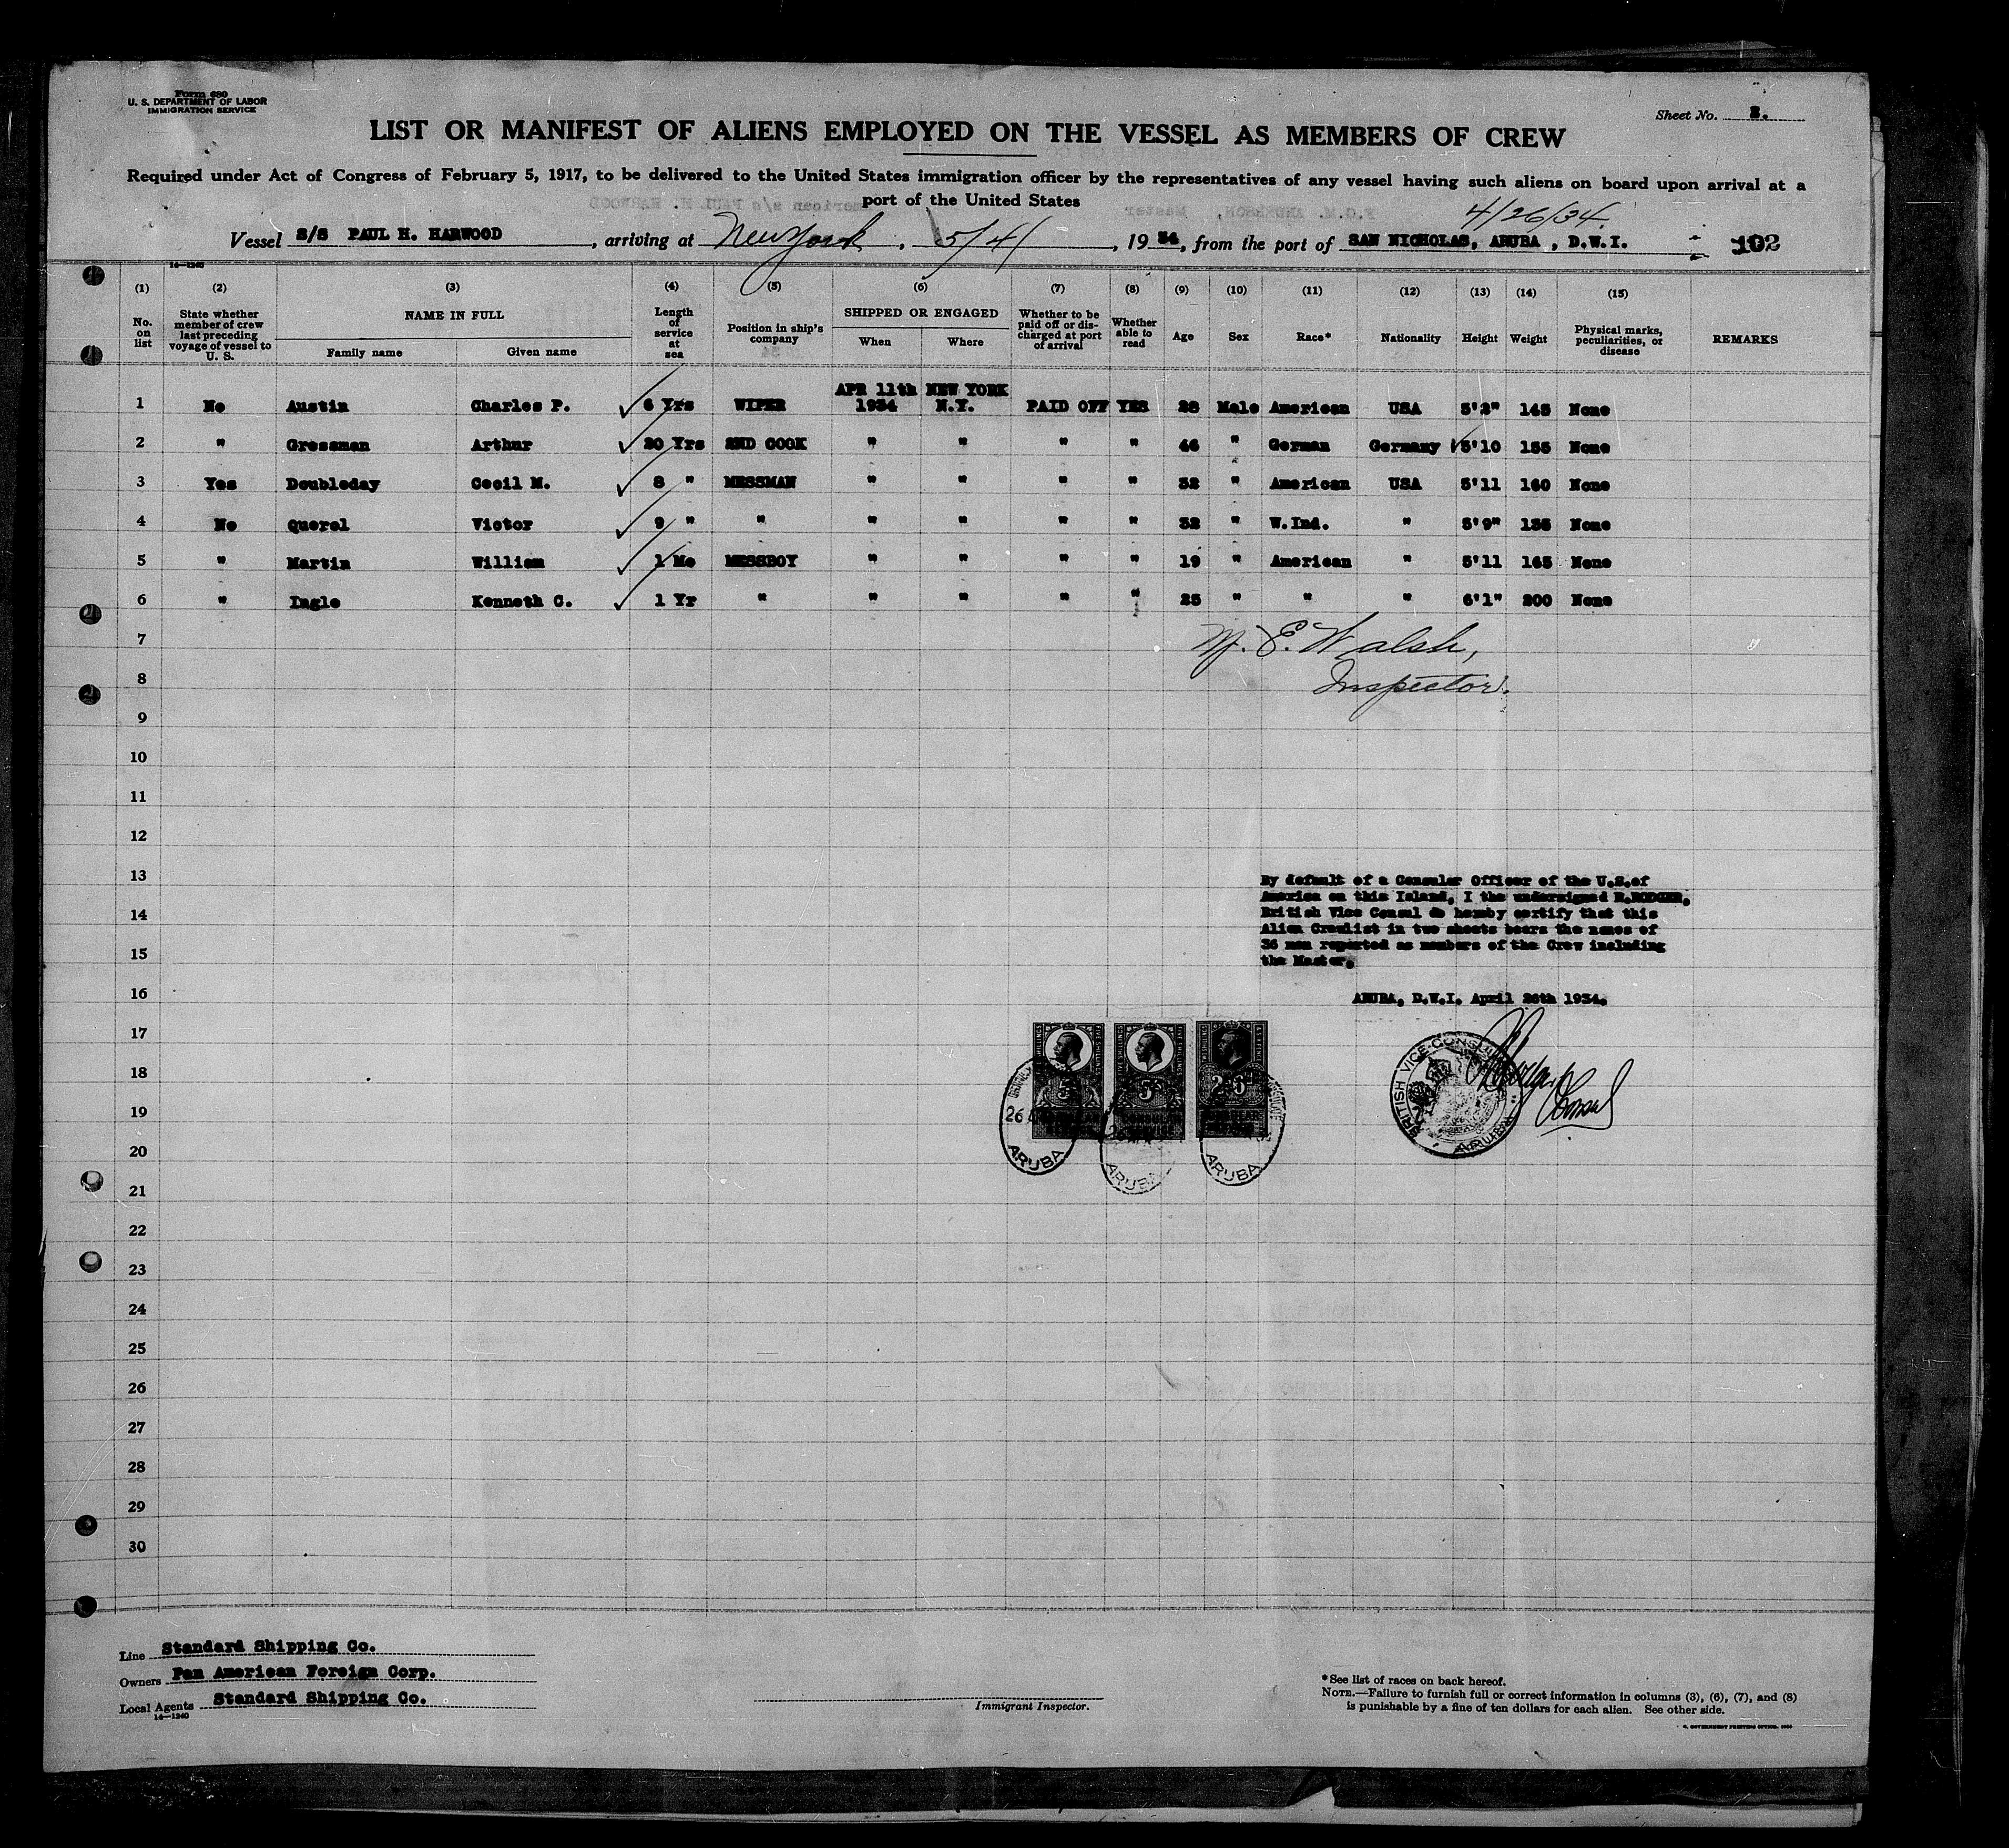 Form 680
U. S. DEPARTMENT OF LABOR
IMMIGRATION SERVICE
Sheet No.
LIST OR MANIFEST OF ALIENS EMPLOYED ON THE VESSEL AS MEMBERS OF CREW
Required under Act of Congress of February 5, 1917, to be delivered to the United States immigration officer by the representatives of any vessel having such aliens on board upon arrival at a
port of the United States
4/26/34.
Vessel S/S PAUL H. HARWOOD, arriving at New York, 5/4/, 19 34, from the port of SAN NICHOLAS, ARUBA, D.W.I. 102
14—1240
(1) (2) (3) (4) (5) (6) (7) (8) (9) (10) (11) (12) (13) (14) (15)
No. on list State whether member of crew last preceding voyage of vessel to U. S. NAME IN FULL Family name Given name Length of service at sea Position in ship's company SHIPPED OR ENGAGED When Where Whether to be paid off or discharged at port of arrival Whether able to read Age Sex Race* Nationality Height Weight Physical marks, peculiarities, or disease REMARKS
APR 11th NEW YORK
1 No Austin Charles P. 6 Yrs WIPER 1934 N.Y. PAID OFF YES 28 Male American USA 5'2" 145 None
2 " Grossman Arthur 20 Yrs 2ND COOK " " " " 46 " German Germany 5'10 155 None
3 Yes Doubleday Cecil M. 8 " MESSMAN " " " " 32 " American USA 5'11 160 None
4 No Querel Victor 9 " " " " " " 32 " W.Ind. " 5'9" 135 None
5 " Martin William 1 Mo MESSBOY " " " " 19 " American " 5'11 165 None
6 " Ingle Kenneth C. 1 Yr " " " " " 25 " " " 6'1" 200 None
7
M. E. Walsh,
8
Inspector.
9
10
11
12
13
By default of a Consular Officer of the U.S.of
America on this Island, I the undersigned R.RODGER,
14
British Vice Consul do hereby certify that this
Alien Crewlist in two sheets bears the names of
36 men reported as members of the Crew including
15
the Master.
16
ARUBA, D.W.I. April 26th 1934.
17
18
19
20
21
22
23
24
25
26
27
28
29
30
BRITISH VICE-CONSULATE ARUBA
Consul
26
ARUBA
ARUBA
ARUBA
Line Standard Shipping Co.
Owners Pan American Foreign Corp.
Local Agents Standard Shipping Co.
14—1240
Immigrant Inspector.
*See list of races on back hereof.
NOTE.—Failure to furnish full or correct information in columns (3), (6), (7), and (8)
is punishable by a fine of ten dollars for each alien. See other side.